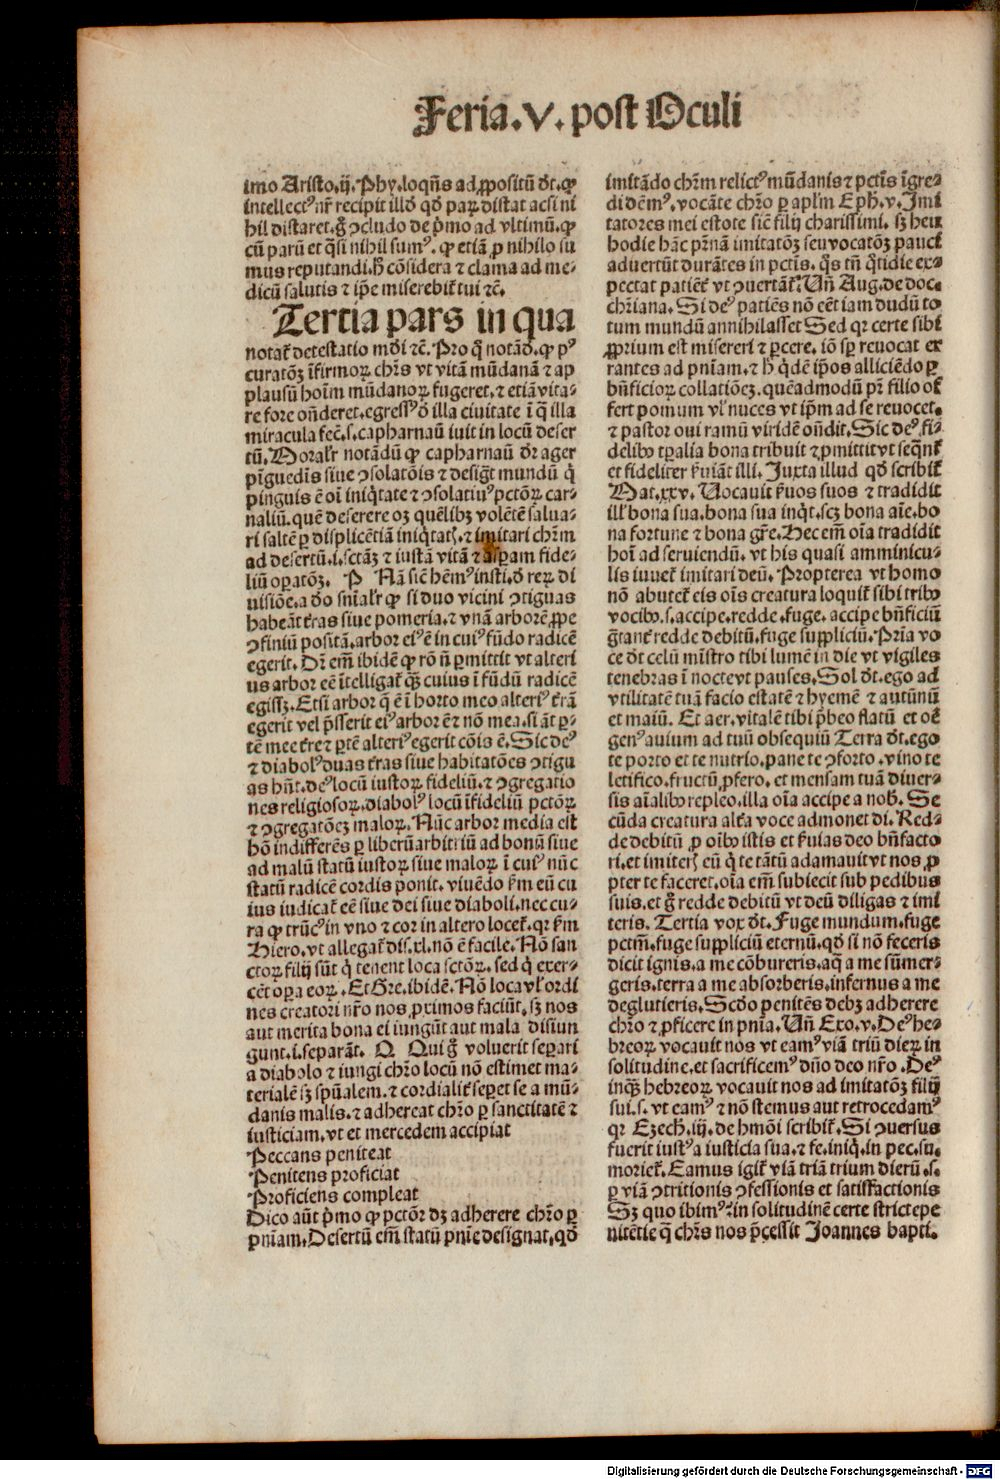 Feria.V.post Oculi
imo Aristo.ij.Phy.loqñs ad ꝓpositū dt̄.ꝙ
intellectꝰ nr̄ recipit illď qď paꝝ distat acsi ni
hil distaret.g̊ ↄcludo de p̊mo ad vltimū.ꝙ
cū parū et q̄si nihil sumꝰ.ꝙ etiā ꝓ nihilo su
mus reputandi.h̄ cōsidera ⁊ clama ad me-
dicū salutis ⁊ ip̄e miserebit̄ tui ⁊c̄.
Tertia pars in qua
notat̄ detestatio mďi ⁊c̄.Pro q̊ notāď.ꝙ pꝰ
curatōꝫ īfirmoꝝ chr̄s vt vitā mūdanā ⁊ ap
plausū hoīm mūdanoꝝ fugeret.⁊ etiā vita-
re fore on̄deret.egressꝰ ď illa ciuitate ī q̄ illa
miracula fec̄.s.capharnaū iuit in locū deser
tū.Moralr̄ notādū ꝙ capharnaū dr̄ ager
pīguedīs siue ↄsolatōīs ⁊ desigt̄ mundū q̊
pinguis ē oī iniq̊tate ⁊ ↄsolatiuꝰ pctōꝝ car-
naliū.quē deserere oꝫ quēlibꝫ volētē salua-
ri saltē ꝑ displicētiā iniq̊tatꝭ.⁊ imitari chr̄m
ad desertū.i.sctāꝫ ⁊ iustā vitā ⁊ asꝑam fide-
liū oꝑatōꝫ. P Nā sic̄ hēmꝰ insti.ď reꝝ di
uisiōe.a ďo sn̄ialr̄ ꝙ si duo vicini ↄtiguas
habeāt t̄ras siue pomeria.⁊ vnā arborē ꝓpe
ↄfiniū positā.arbor eiꝰ ē in cuiꝰ fūdo radicē
egerit.Dr̄ em̄ ibidē ꝙ rō n̄ ꝑmittit vt alteri
us arbor eē ītelligat̄ qꝫ̄ cuius ī fūdū radicē
egissꝫ.Etsi arbor q̄ ē ī horto meo alteriꝰ t̄rā
egerit vel p̄sserit eiꝰ arbor ē ⁊ nō mea.si āt ꝑ-
tē mee t̄re ⁊ ꝑtē alteriꝰ egerit cōis ē.Sic deꝰ
⁊ diabolꝰ duas t̄ras siue habitatōes ↄtigu
as hn̄t.deꝰ locū iustoꝝ fideliū.⁊ ↄgregatio
nes religiosoꝝ.diabolꝰ locū īfideliū pctōꝝ
⁊ ↄgregatōeꝫ maloꝝ.Nūc arbor media est
hō indifferēs ꝑ liberū arbitriū ad bonū siue
ad malū statū iustoꝝ siue maloꝝ ī cuiꝰ nūc
statū radicē cordis ponit.viuēdo ẜm eū cu
ius iudicat̄ eē siue dei siue diaboli.nec cu-
ra ꝙ trūcꝰ in vno ⁊ cor in altero locet̄.qr ẜm
Hiero.vt allegat̄ dis.xl.nō ē facile.Nō san
ctoꝝ filij sūt q̊ tenent loca sctōꝝ.sed q̊ exer-
cēt oꝑa eoꝝ.Et Gre.ibidē.Nō loca vl̓ ordi
nes creatori nr̄o nos ꝓximos faciūt.sꝫ nos
aut merita bona ei iungūt aut mala disiun
gunt.i.separāt. Q Qui g̊ voluerit seꝑari
a diabolo ⁊ iungi chr̄o locū nō estimet ma-
terialē sꝫ spūalem.⁊ cordialit̄ seꝑet se a mū-
danis malis.⁊ adhereat chr̄o ꝑ sanctitatē ⁊
iusticiam.vt et mercedem accipiat
Peccans peniteat
Penitens proficiat
Proficiens compleat
Dico aūt p̊mo ꝙ pctōr dꝫ adherere chr̄o ꝑ
pn̄iam.Desertū em̄ statū pnīe designat.qď
imitādo chr̄m relictꝰ mūdanis ⁊ pctīs īgre-
di dēmꝰ.vocāte chr̄o ꝑ apl̄m Eph̓.v.Imi
tatores mei estote sic̄ filij charissimi. sꝫ heu
hodie hāc pr̄nā imitatōꝫ seu vocatōꝫ pauci
aduertūt durātes in pctīs.q̊s tn̄ q̊tidie ex-
pectat patiēt̄ vt ↄuertāt̄.Un̄ Aug.de doc.
chr̄iana.Si deꝰ patiēs nō eēt iam dudū to
tum mundū annihilasset Sed qr certe sibi
ꝓprium est misereri ⁊ ꝑcere.iō sꝑ reuocat er
rantes ad pniam.⁊ h̄ q̊dē ip̄os alliciēdo ꝑ
bn̄ficioꝝ collatiōeꝫ.quēadmodū pr̄ filio of
fert pomum vl̓ nuces vt ip̄m ad se reuocet.
⁊ pastor oui ramū viridē on̄dit.Sic deꝰ fi-
delibꝰ tꝑalia bona tribuit ⁊ ꝓmittit vt seq̄nt̄
et fideliter ẜuiāt illi.Iuxta illud qď scribit̄
Mat.xxv.Uocauit ẜuos suos ⁊ tradidit
ill̓ bona sua.bona sua inq̊t.scꝫ bona aīe.bo
na fortune ⁊ bona gr̄e.Hec em̄ oīa tradidit
hoī ad seruiendū.vt his quasi amminicu-
lis iuuet̄ imitari deū.Propterea vt homo
nō abutet̄ eis oīs creatura loquit̄ sibi tribꝰ
vocibꝰ.s.accipe.redde.fuge.accipe bn̄ficiū
g̊tant̄ redde debitū.fuge suppliciū.Prīa vo
ce dt̄ celū mīstro tibi lumē in die vt vigiles
tenebras ī nocte vt pauses.Sol dt̄.ego ad
vtilitatē tuā facio estatē ⁊ hyemē ⁊ autūnū
et maiū. Et aer.vitalē tibi p̄beo flatū et oē
genꝰ auium ad tuū obsequiū Terra dt̄.ego
te porto et te nutrio.pane te ↄforto.vino te
letifico.fructū ꝓfero.et mensam tuā diuer-
sis aīalibꝰ repleo.illa oīa accipe a nob̓. Se
cūda creatura alt̄a voce admonet di. Red-
de debitū ꝓ oībꝰ istis et ẜuias deo bn̄facto
ri.et imiteꝭ eū q̊ te tātū adamauit vt nos ꝓ
pter te faceret.oīa em̄ subiecit sub pedibus
suis.et g̊ redde debitū vt deū diligas ⁊ imi
teris. Tertia vox dt̄. Fuge mundum.fuge
pctm̄.fuge suppliciū eternū.qď si nō feceris
dicit ignis.a me cōbureris.aq̄ a me sūmer-
geris.terra a me absorberis.infernus a me
deglutieris.Scďo penitēs debꝫ adherere
chr̄o ⁊ ꝓficere in pnīa.Un̄ Exo.v.Deꝰ he-
breoꝝ vocauit nos vt eamꝰ viā triū dieꝝ in
solitudine.et sacrificemꝰ dn̄o deo nr̄o.Deꝰ
inqꝫ̄ hebreoꝝ vocauit nos ad imitatōꝫ filij
sui.s.vt eamꝰ ⁊ nō stemus aut retrocedamꝰ
qr Ezech̓.iij.de hmōi scribit̄.Si ↄuersus
fuerit iustꝰ a iusticia sua.⁊ fe.iniq̊.in pec.su.
moriet̄.Eamus igit̄ viā triā trium dierū.s.
ꝑ viā ↄtritionis ↄfessionis et satisfactionis
Sꝫ quo ibimꝰ?in solitudinē certe stricte pe
nitētie q̄ chr̄s nos p̄cessit Joannes bapti.
Digitalisierung gefördert durch die Deutsche Forschungsgemeinschaft - DFG